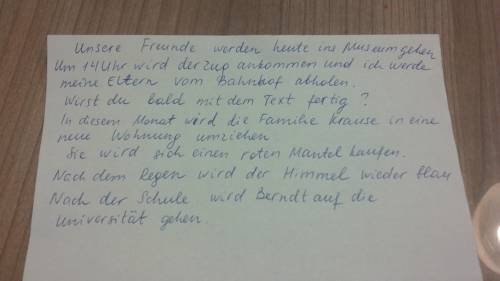 Unsere Freunde werden heute ins Museum gehen
Um 14 Uhr wird der zug ankommen und ich werde
meine Eltern vom Bahnhof abholen.
Wirst du bald mit dem Text fertig ?
In diesem Monat wird die Familie Krause in eine
neue Wohnung umziehen.
Sie wird sich einen roten Mantel kaufen.
Nach dem Regen wird der Himmel wieder blau
Nach der Schule wird Berndt auf die
Universität gehen.